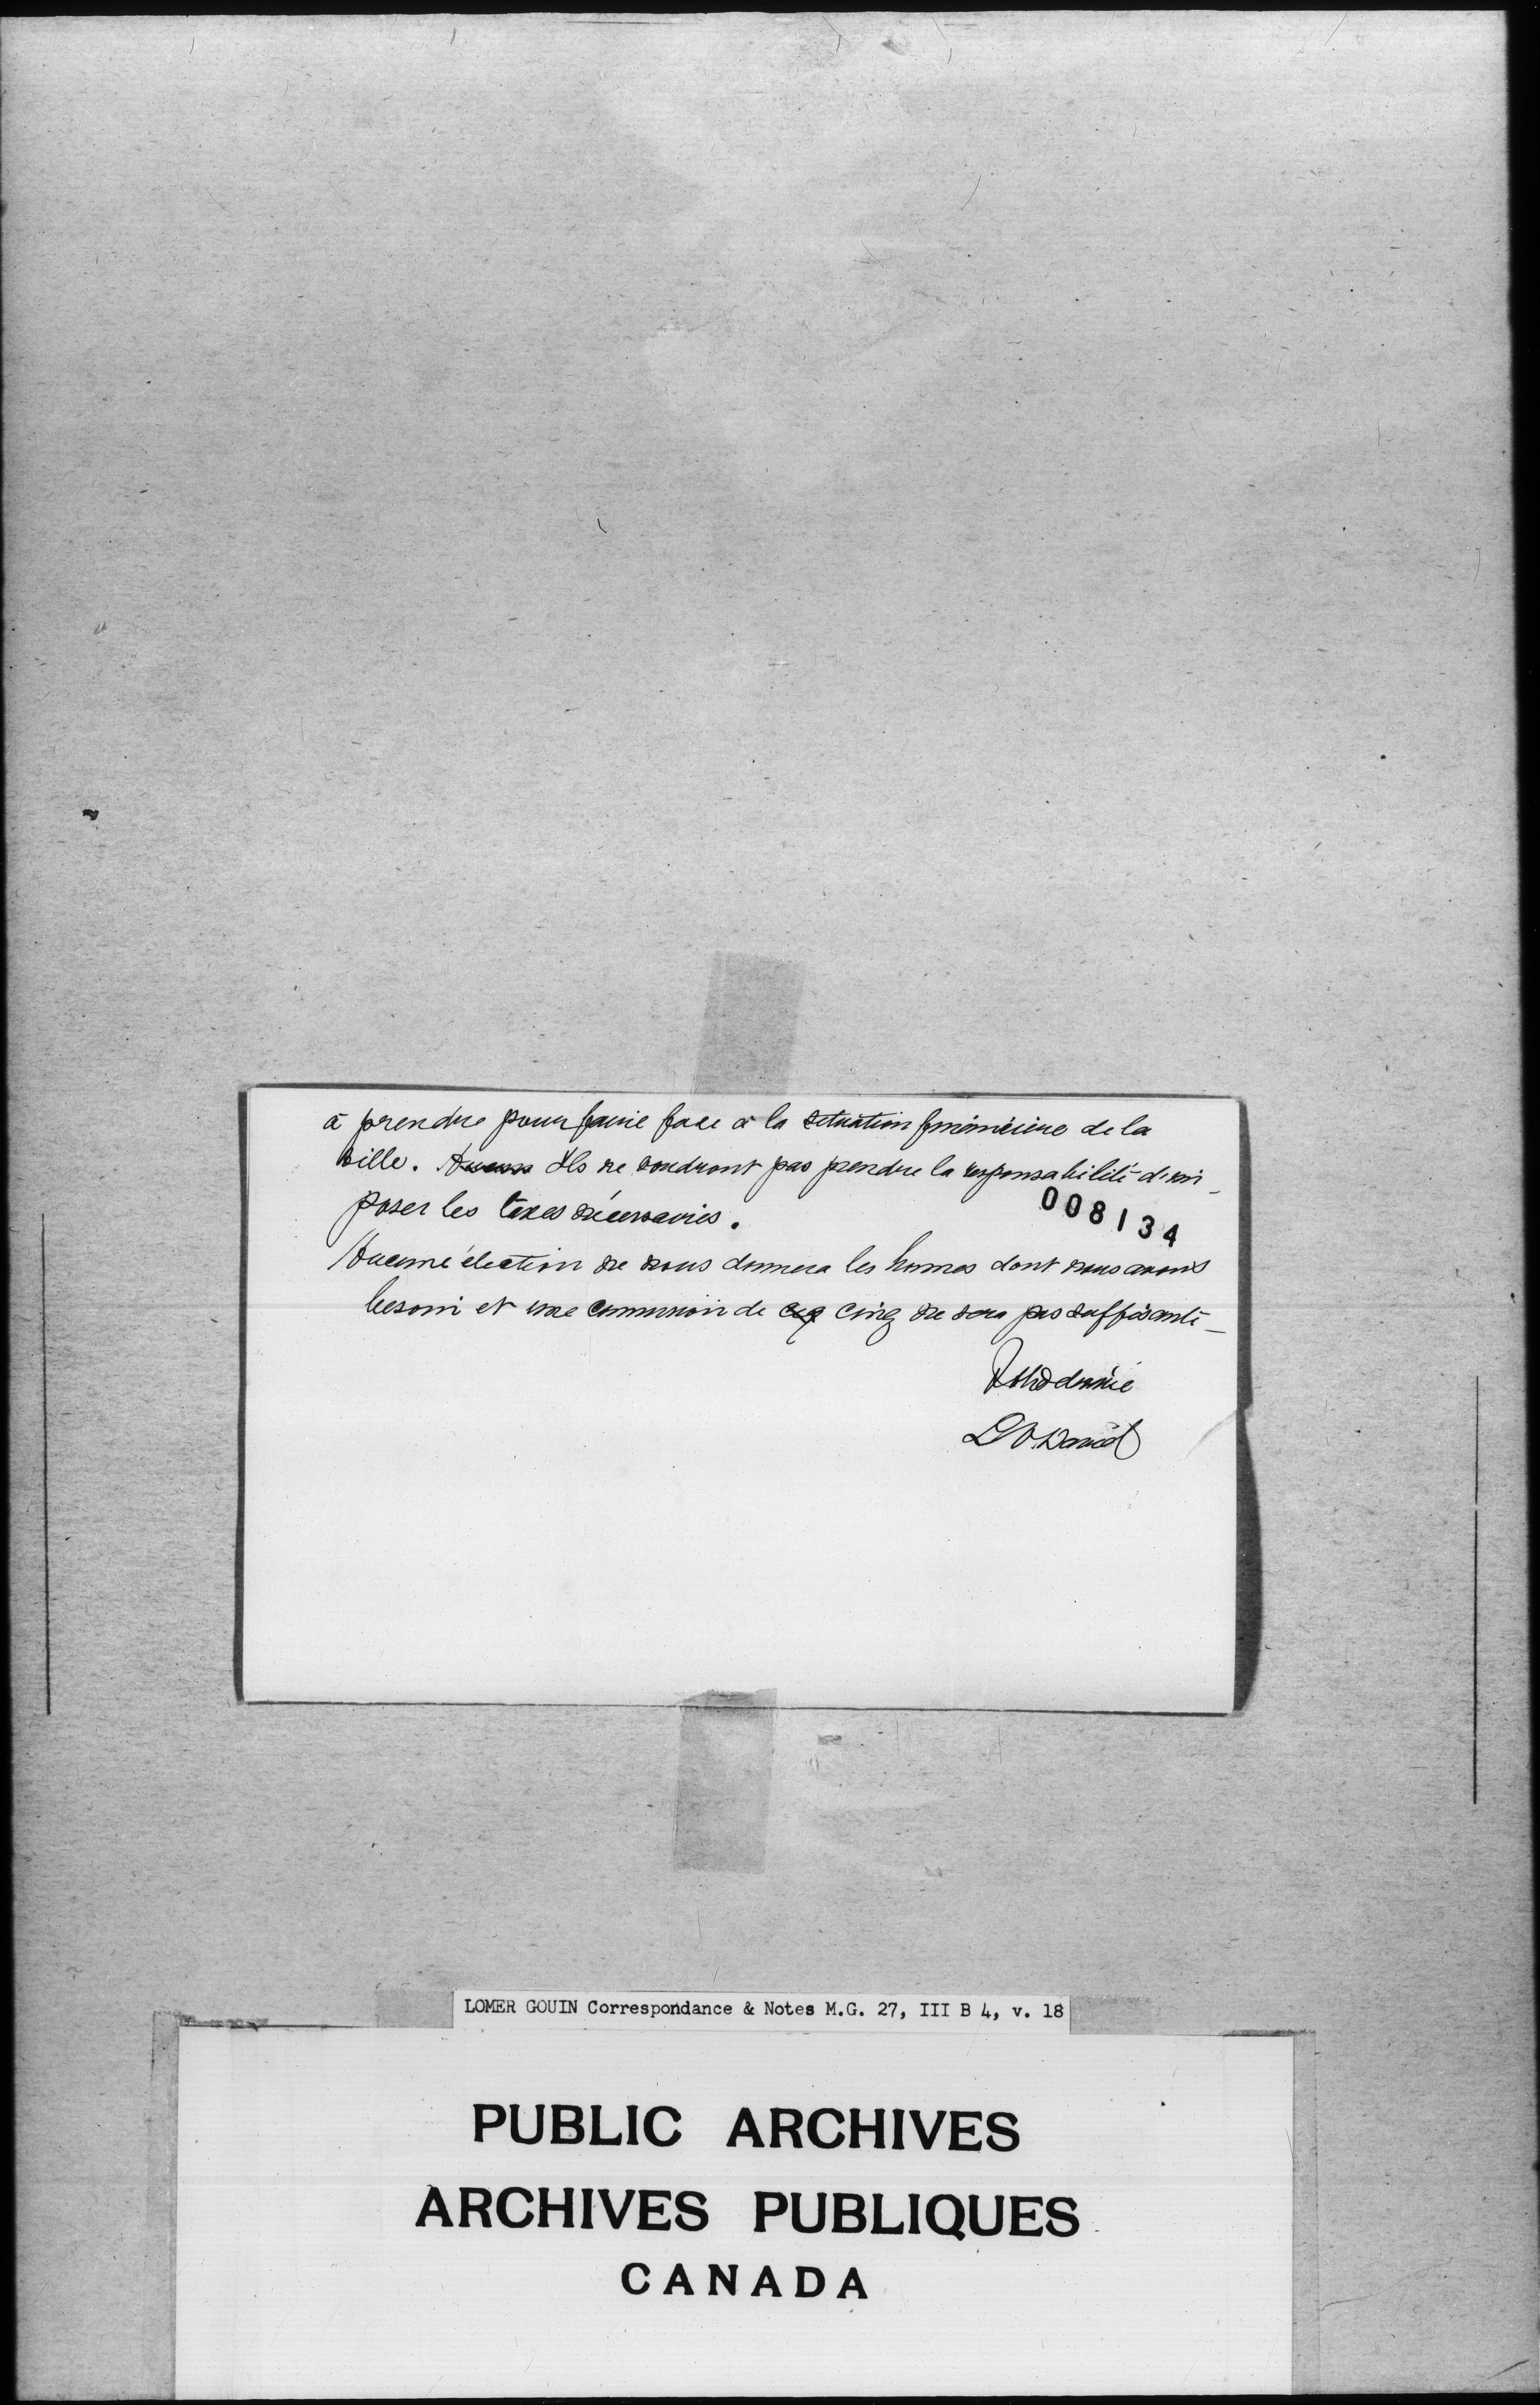 à prendre pour faire face à la situation financière de la
ville. Aucun Ils ne voudront pas prendre la responsabilité d'im-
poser les taxes nécessaires.
008134
Aucune élection ne nous donnera les hommes dont nous avons
besoin et une commission de cinq ne sera pas suffisante -
Votre dévoué
L O. David
LOMER GOUIN Correspondance & Notes M.G. 27, III B 4, v. 18
PUBLIC ARCHIVES
ARCHIVES PUBLIQUES
CANADA